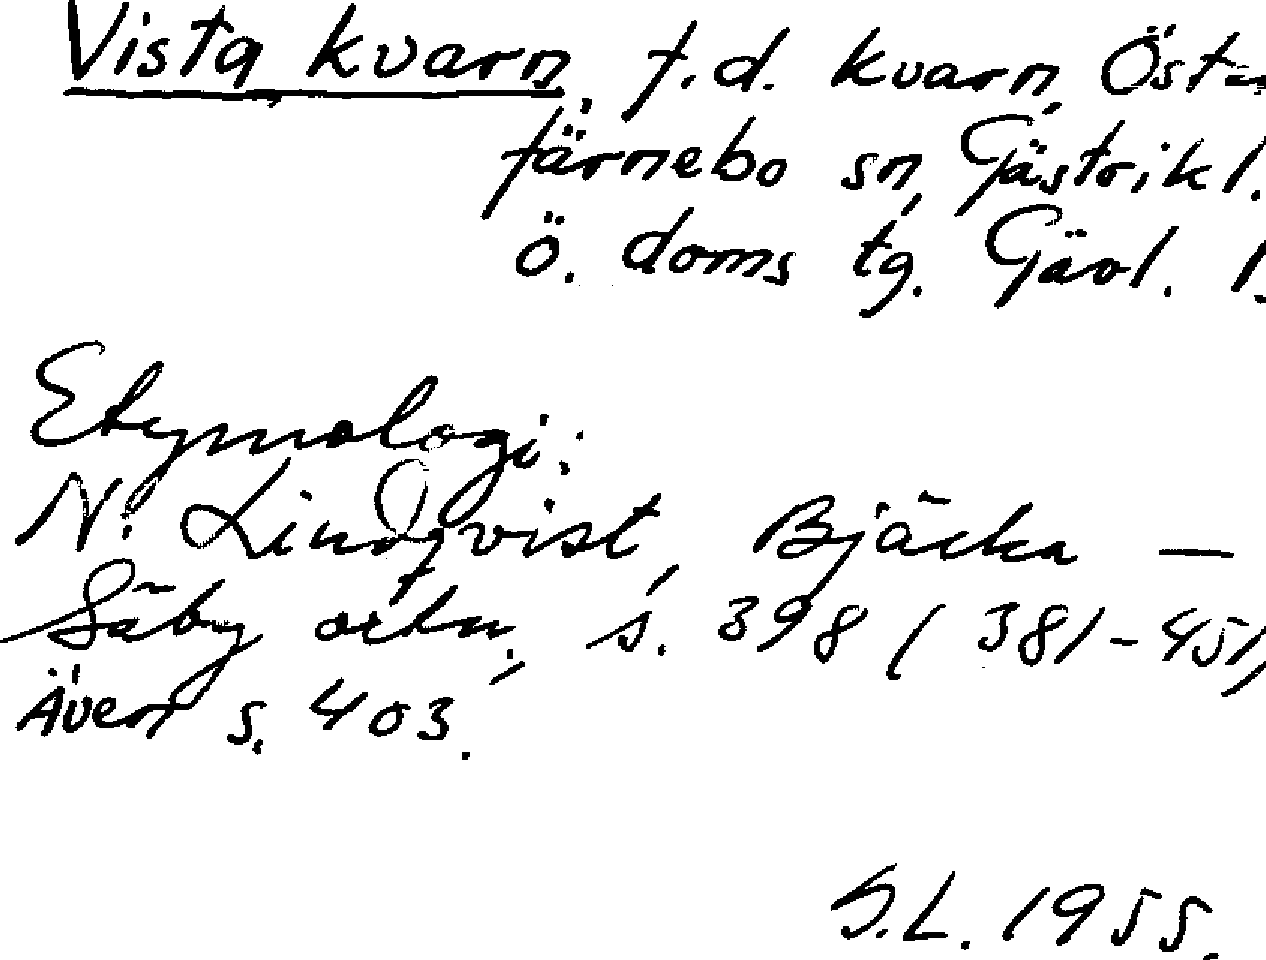 Vista kvarn, f.d. kvarn, Öst-
färnebo sn, Gästrikl.
ö. doms tg. Gävl. l.
Etymologi:
N. Lindqvist, Bjärka —
Säby ortn., s. 398 (381-451,
Även s. 403.
S.L. 1955.